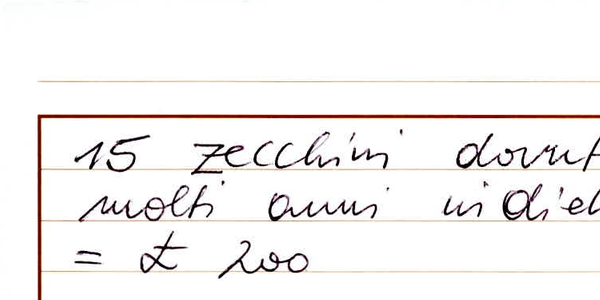 15 zecchini dovut
molti anni indiet
= £ 200